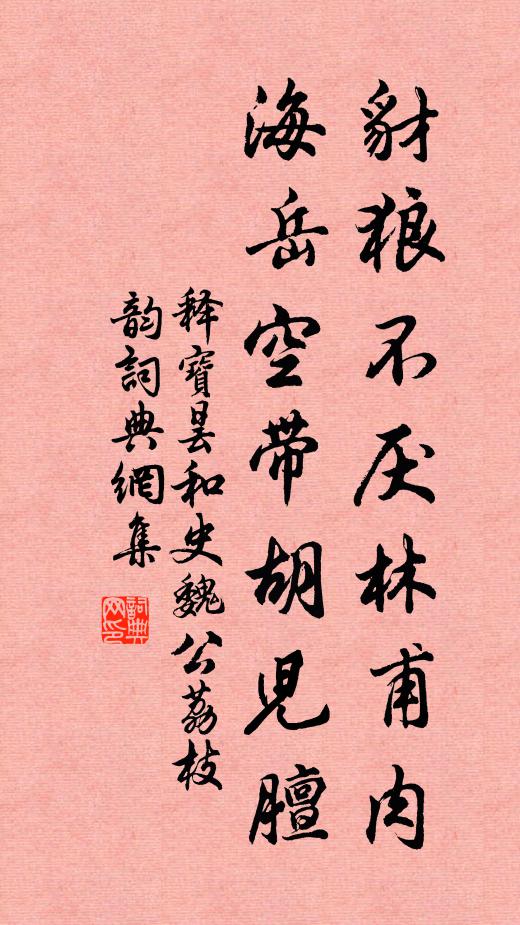 豺狼不厌林甫肉
海岳空带胡児膻
释寶昙和史魏公荔枝
韵詞典網集
詞典网印